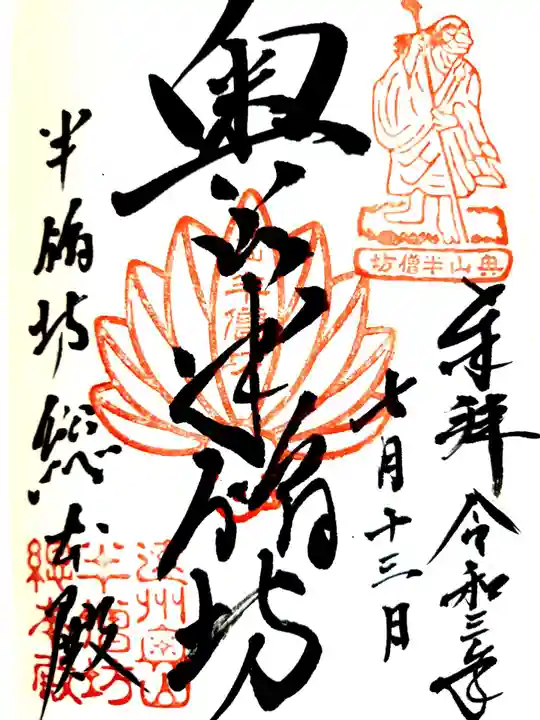 奥山半僧坊
奉拝 令和三年
七月十三日
奥山半僧坊
半僧坊総本殿
遠州奥山
半僧坊
総本殿